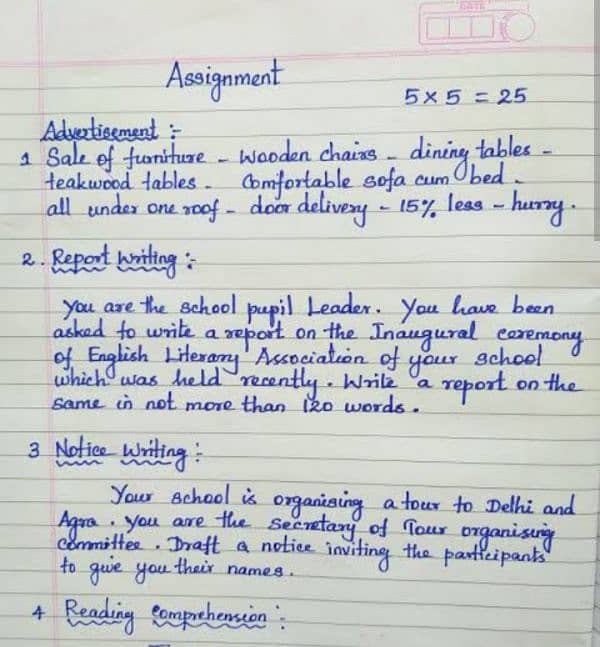 DATE
Assignment
5 x 5 = 25
Advertisement :-
1 Sale of furniture - Wooden chairs - dining tables -
teakwood tables - Comfortable sofa cum bed -
all under one roof - door delivery - 15% less - hurry.
2. Report Writing :-
You are the school pupil Leader. You have been
asked to write a report on the Inaugural ceremony
of English Literary Association of your school
which was held recently. Write a report on the
same in not more than 120 words.
3 Notice Writing :-
Your school is organising a tour to Delhi and
Agra. You are the secretary of Tour organising
committee. Draft a notice inviting the participants
to give you their names.
4 Reading Comprehension :-